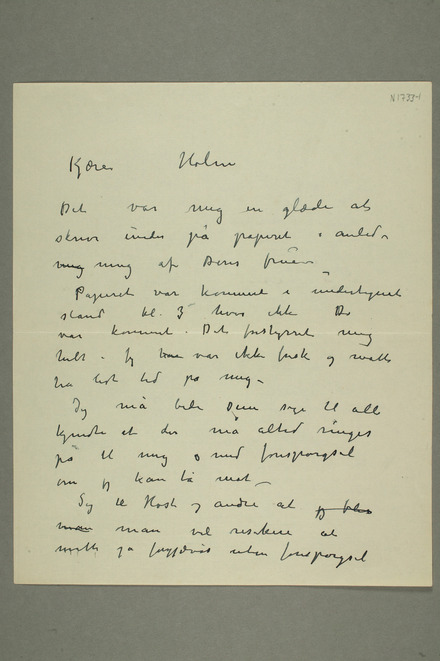 N 1733-1
Kjære Holm
Det var mig en glæde at
skrive under på papiret i anled-
ning af Deres
Papiret var kommet i
stand kl. 3 hvis ikke De
var kommet. Det forstyrret mig
helt. Jeg var ikke frisk og måtte
ha lidt tid på mig –
Jeg må bede Dem sige til alle
kjendte at der må altid ringes
på til mig med forespørgsel
om jeg kan ta mot –
Sig til Høst og andre at
man vil resikere at
måtte gå forgjæves uten forespørgsel